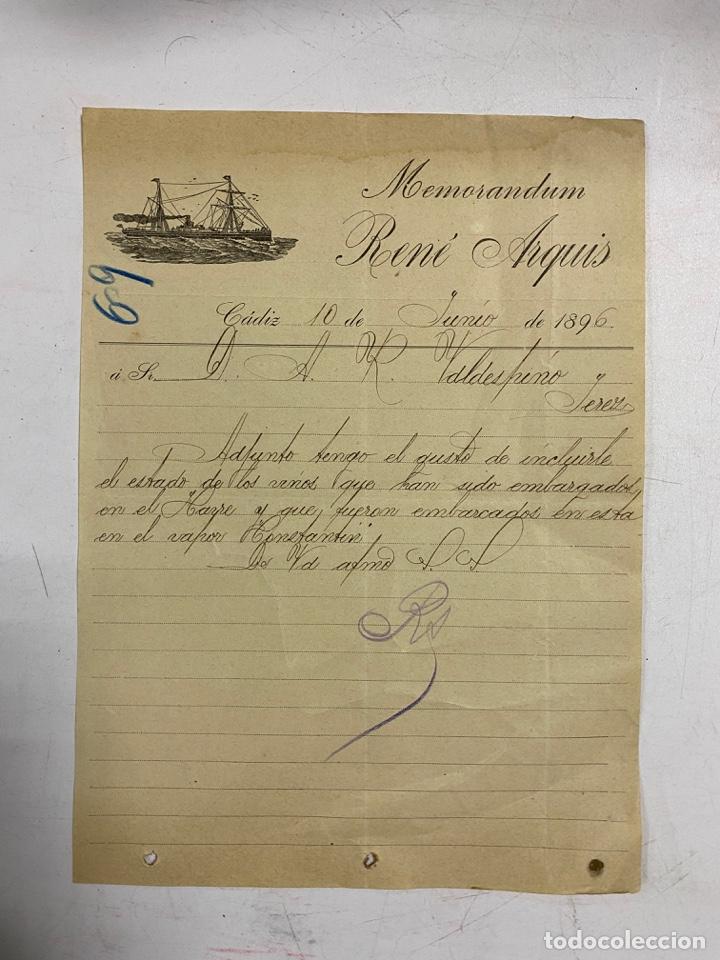 Memorandum
René Arquis
69
Cádiz 10 de Junio de 1896.
á Sr. D. A. R. Valdespino y
Jerez
Adjunto tengo el gusto de incluirle
el estado de los vinos que han sido embargados
en el Havre y que fueron embarcados en esta
en el vapor "Konstantin"
De Vd afmo S. S.
todocoleccion.net